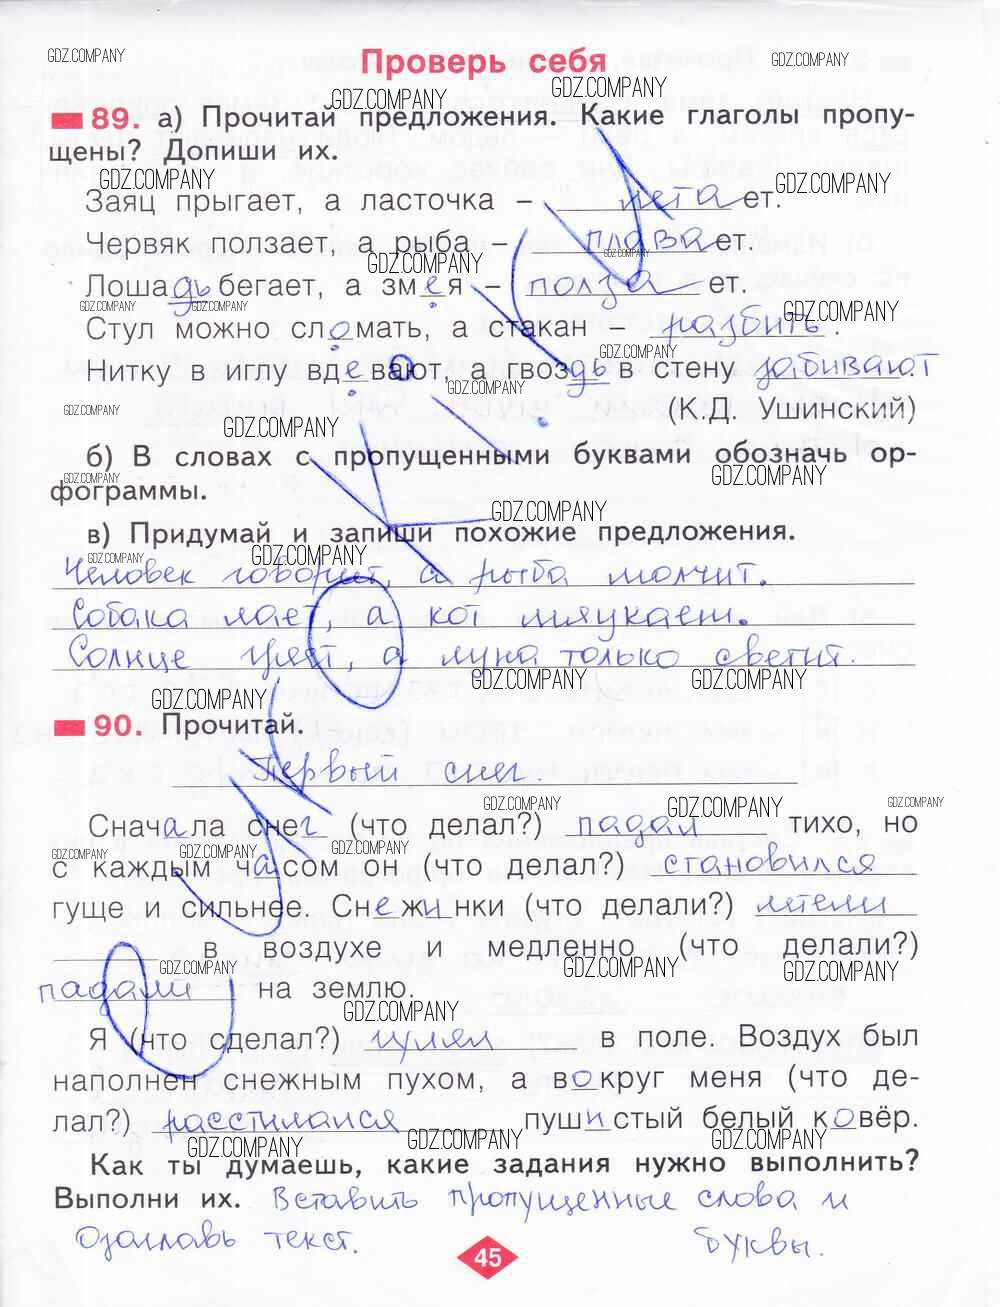 GDZ.COMPANY
Проверь себя
89. а) Прочитай предложения. Какие глаголы пропу-
щены? Допиши их.
Заяц прыгает, а ласточка – летает.
Червяк ползает, а рыба – плавает.
Лошадь бегает, а змея – ползает.
Стул можно сломать, а стакан – разбить.
Нитку в иглу вдевают, а гвоздь в стену забивают
(К.Д. Ушинский)
б) В словах с пропущенными буквами обозначь ор-
фограммы.
в) Придумай и запиши похожие предложения.
Человек говорит, а рыба молчит.
Собака лает, а кот мяукает.
Солнце греет, а луна только светит.
90. Прочитай.
Первый снег.
Сначала снег (что делал?) падал тихо, но
с каждым часом он (что делал?) становился
гуще и сильнее. Снежинки (что делали?) летели
в воздухе и медленно (что делали?)
падали на землю.
Я (что сделал?) гулял в поле. Воздух был
наполнен снежным пухом, а вокруг меня (что де-
лал?) расстилался пушистый белый ковёр.
Как ты думаешь, какие задания нужно выполнить?
Выполни их. Вставить пропущенные слова и
Озаглавь текст. буквы.
45